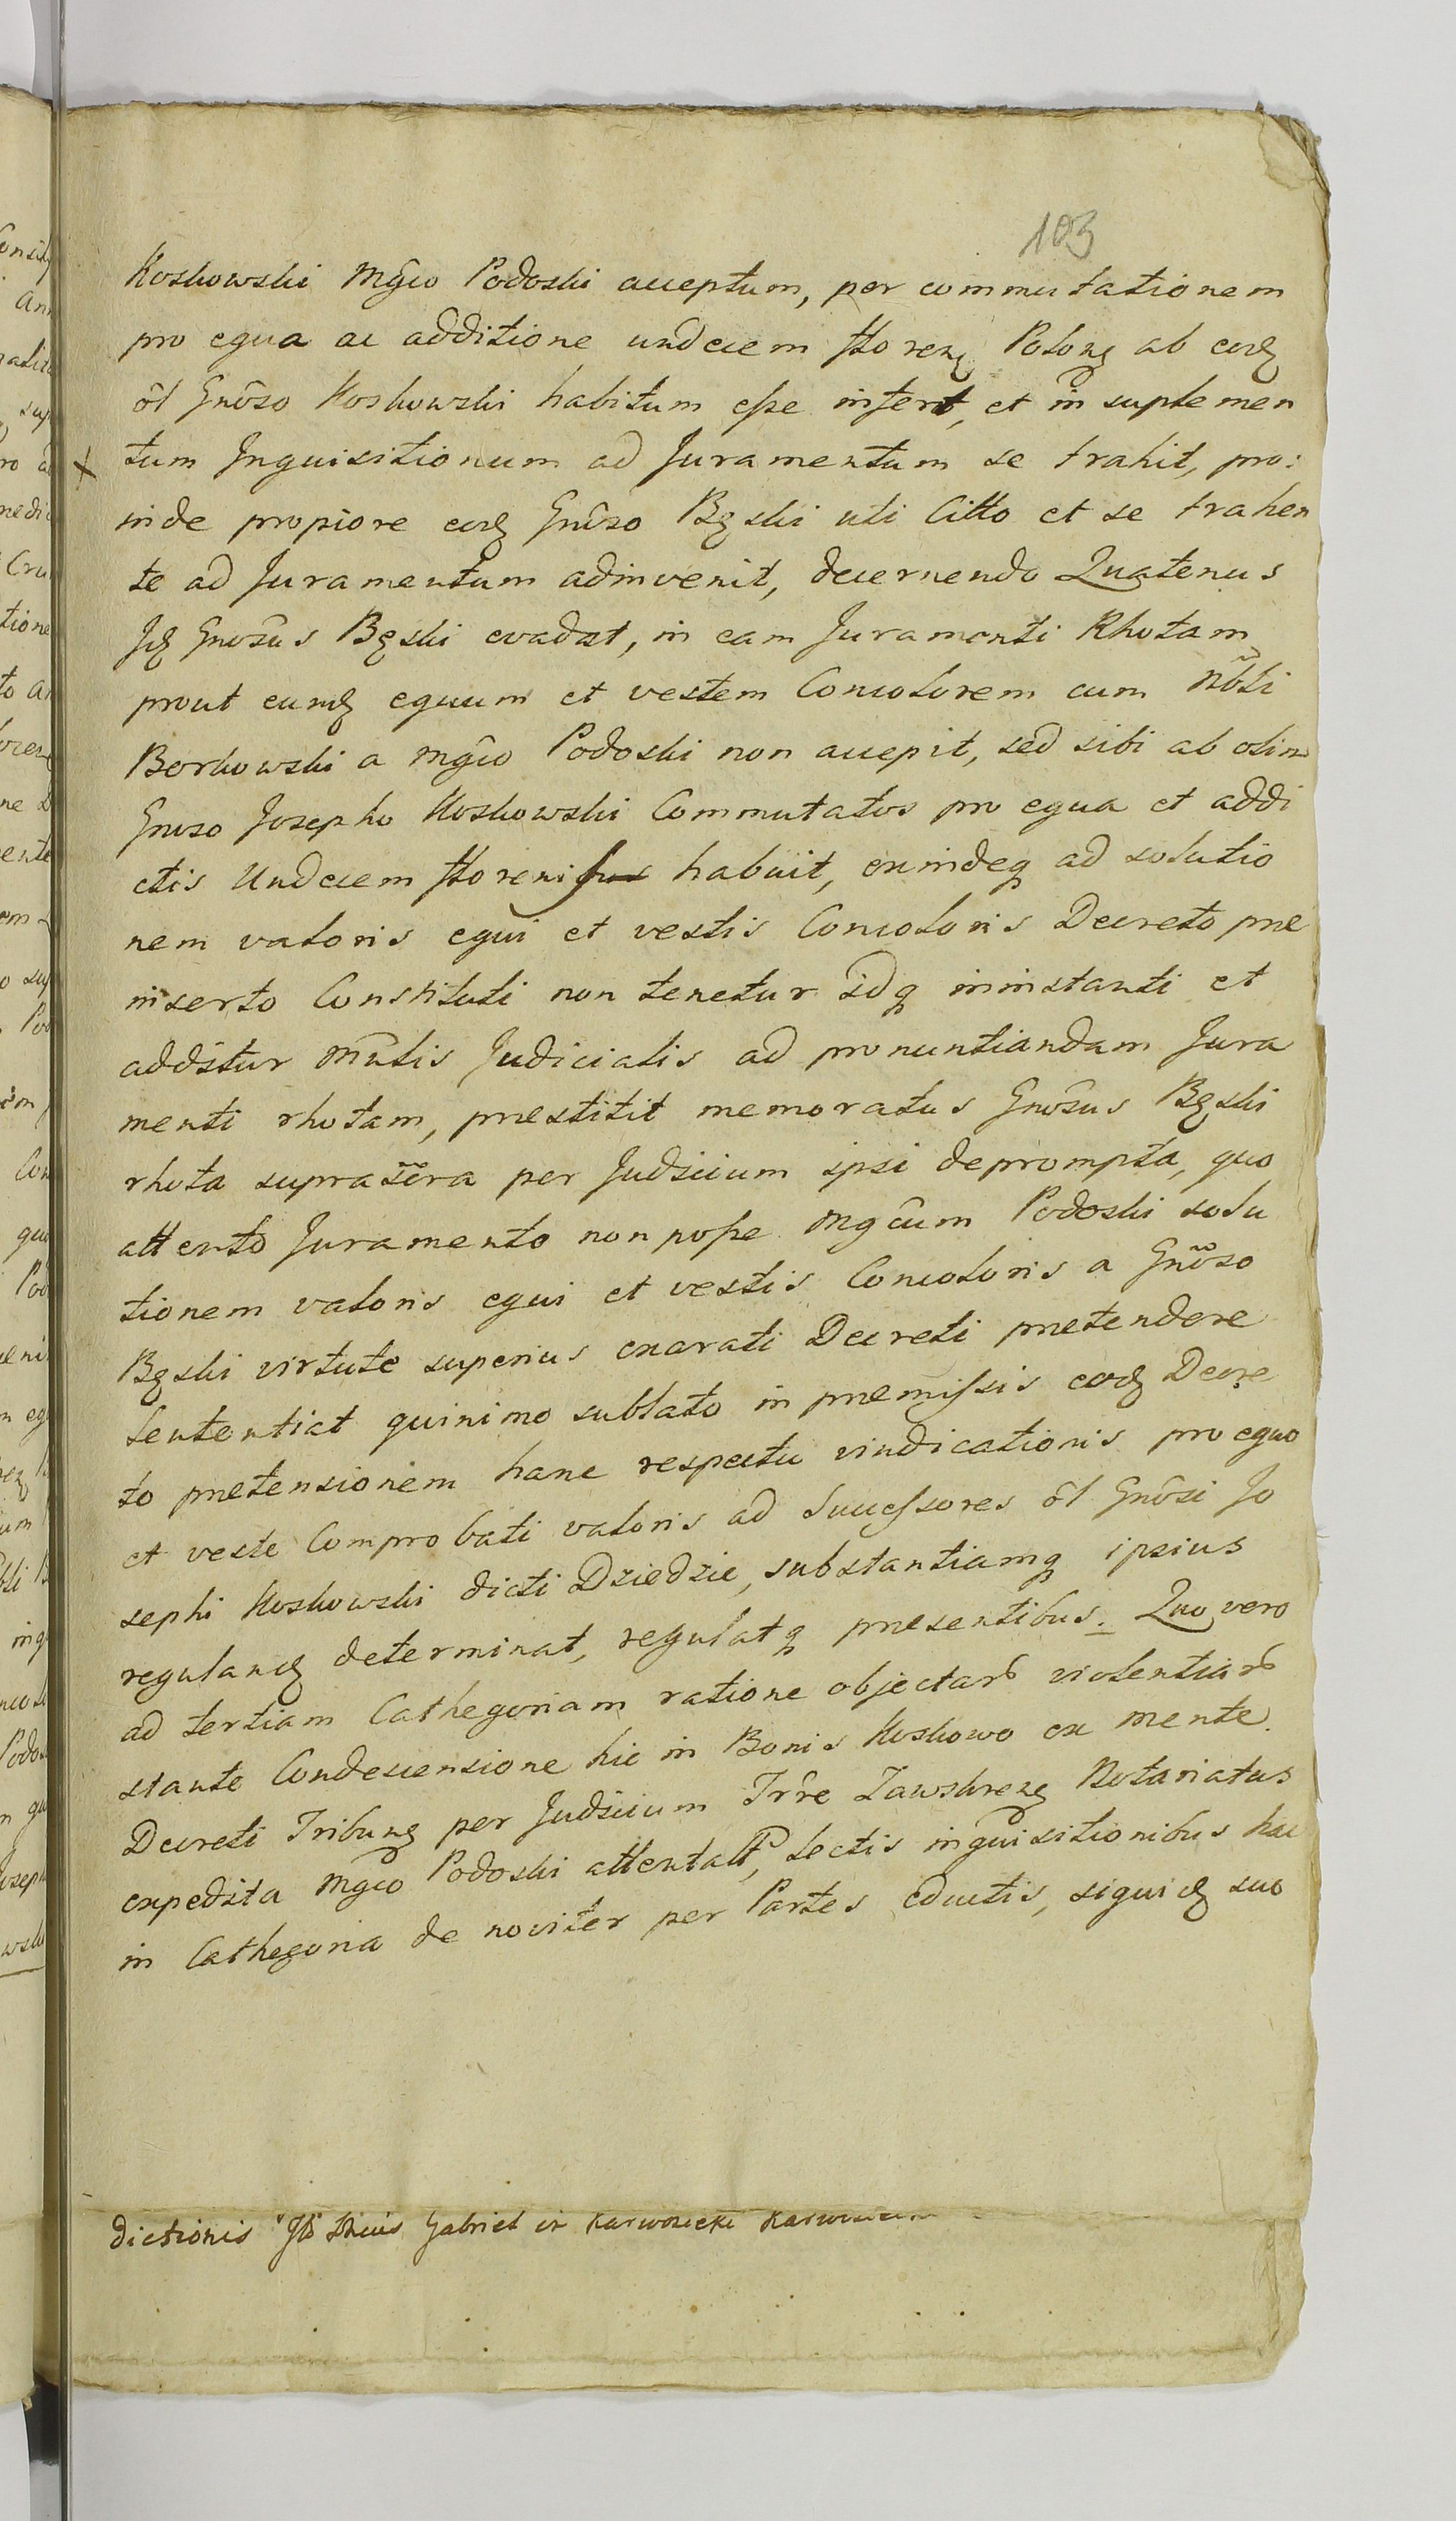 103
Koskowski Mgco Podoski acceptum, per commutationem
pro equa ac additione undecem floreng Polong ab eodg
ol Gnoso Koskowski habitum esse infert, et in suplemen
x tum Inquisitionum ad Juramentum se trahit, pro:
inde propiore eodg Gnoso Bgski uti Citto et se trahen
te ad Juramentum adinvenit, decernendo Quatenus
Idg Gnosus Bgski evadat, in eam Juramenti Rhotam
prout eumdg equum et vestem Concolorem cum Nobli
Borkowski a Mgco Podoski non accepit, sed sibi ab olim
Gnoso Josepho Koskowski Commutatos pro equa et addi
ctis Undecem floreni habuit, exindeq ad solutio
nem valoris equi et vestis Concoloris Decreto pre
inserto Constituti non tenetur idq ininstanti et
additur Mntis Judicialis ad pronuntiandam Jura
menti rhotam, prestitit memoratus Gnosus Bgski
rhota suprascra per Judicium ipsi deprompta, quo
attento Juramento non posse Mgcum Podoski solu
tionem valoris equi et vestis Concoloris a Gnoso
Bgski virtute superius exarati Decreti pretendere
Sententiat quinimo sublato in premissis eodg Decre
to pretensionem hanc respectu vindicationis pro equo
et veste Comprobati valoris ad Successores ol Gnosi Jo
sephi Koskowski dicti Dziedzic, substantiamq ipsius
regulandg determinat, regulatq presentibus. Quo vero
ad tertiam Cathegoriam ratione objectar violentiar
stante Condescensione hic in Bonis Koskowo ex mente
Decreti Tribung per Judicium Trre Zawskreng Notariatus
expedita Mgco Podoski attentatt, lectis inquisitionibus hac
in Cathegoria de noviter per Partes eductis, siquidg suo
dictionis Gabriel in Karwosieki